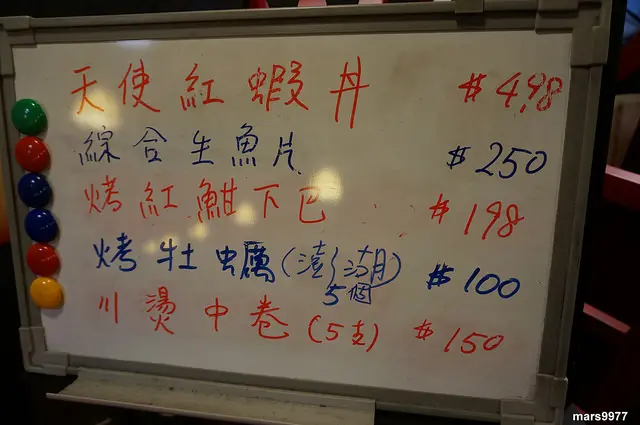 天使紅蝦丼 $498
綜合生魚片 $250
烤紅魽下巴 $198
烤牡蠣(澎湖) $100
5個
川燙中卷(5支) $150
mars9977